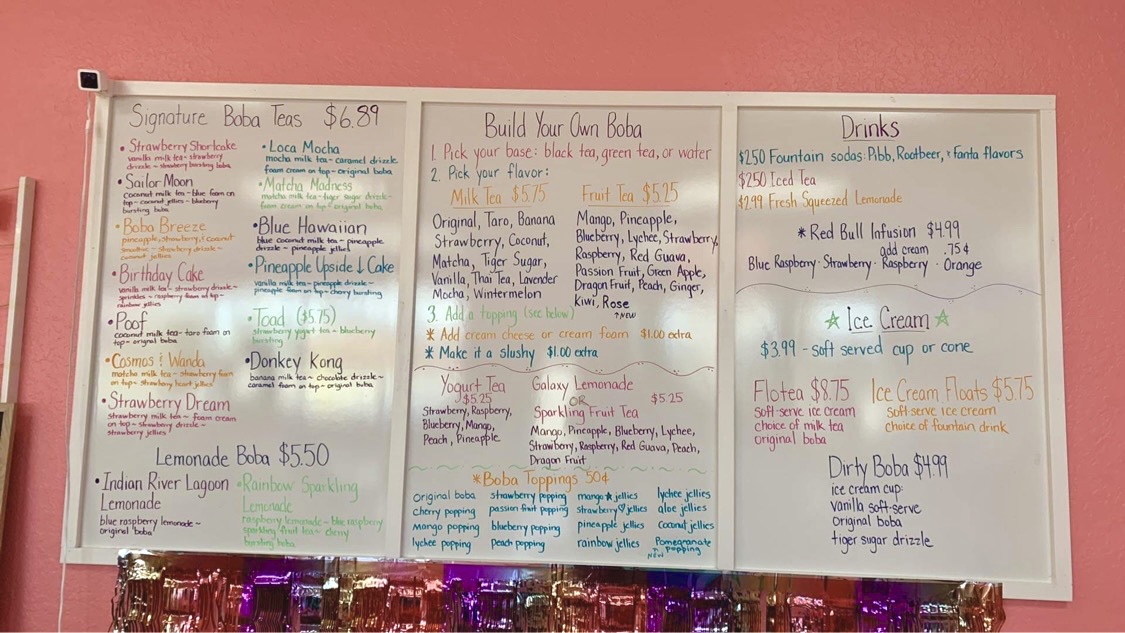 Signature Boba Teas $6.89
• Strawberry Shortcake
vanilla milk tea~strawberry
drizzle~strawberry bursting boba
• Sailor Moon
coconut milk tea~blue foam on
top~coconut jellies~blueberry
bursting boba
• Boba Breeze
pineapple, strawberry, & coconut
smoothie~strawberry drizzle~
coconut jellies
• Birthday Cake
vanilla milk tea~strawberry drizzle~
sprinkles~raspberry foam on top~
rainbow jellies
• Poof
coconut milk tea~taro foam on
top~original boba
• Cosmos & Wanda
matcha milk tea~strawberry foam
on top~strawberry heart jellies
• Strawberry Dream
strawberry milk tea~foam cream
on top~strawberry drizzle~
strawberry jellies
• Loca Mocha
mocha milk tea~caramel drizzle
foam cream on top~original boba
• Matcha Madness
matcha milk tea~tiger sugar drizzle~
foam cream on top~original boba
• Blue Hawaiian
blue coconut milk tea~pineapple
drizzle~pineapple jellies
• Pineapple Upside ↓ Cake
vanilla milk tea~pineapple drizzle~
pineapple foam on top~cherry bursting
• Toad ($5.75)
strawberry yogurt tea~blueberry
bursting
• Donkey Kong
banana milk tea~chocolate drizzle~
caramel foam on top~original boba
Lemonade Boba $5.50
• Indian River Lagoon
Lemonade
blue raspberry lemonade~
original boba
• Rainbow Sparkling
Lemonade
raspberry lemonade~blue raspberry
sparkling fruit tea~cherry
bursting boba
Build Your Own Boba
1. Pick your base: black tea, green tea, or water
2. Pick your flavor:
Milk Tea $5.75
Original, Taro, Banana
Strawberry, Coconut,
Matcha, Tiger Sugar,
Vanilla, Thai Tea, Lavender
Mocha, Wintermelon
Fruit Tea $5.25
Mango, Pineapple,
Blueberry, Lychee, Strawberry,
Raspberry, Red Guava,
Passion Fruit, Green Apple,
Dragon Fruit, Peach, Ginger,
Kiwi, Rose
↑NEW
3. Add a topping (see below)
* Add cream cheese or cream foam $1.00 extra
* Make it a slushy $1.00 extra
Yogurt Tea
$5.25
Strawberry, Raspberry,
Blueberry, Mango,
Peach, Pineapple
Galaxy Lemonade
OR $5.25
Sparkling Fruit Tea
Mango, Pineapple, Blueberry, Lychee,
Strawberry, Raspberry, Red Guava, Peach,
Dragon Fruit
*Boba Toppings 50¢
Original boba strawberry popping mango★jellies lychee jellies
cherry popping passion fruit popping strawberry♡jellies aloe jellies
Mango popping blueberry popping pineapple jellies Coconut jellies
lychee popping peach popping rainbow jellies Pomegranate
↑NEW popping
Drinks
$2.50 Fountain sodas: Pibb, Rootbeer, + Fanta flavors
$2.50 Iced Tea
$2.99 Fresh Squeezed Lemonade
* Red Bull Infusion $4.99
add cream .75¢
Blue Raspberry · Strawberry · Raspberry · Orange
☆ Ice Cream ☆
$3.99 - soft served cup or cone
Flotea $8.75
soft-serve ice cream
choice of milk tea
original boba
Ice Cream Floats $5.75
soft-serve ice cream
choice of fountain drink
Dirty Boba $4.99
ice cream cup:
vanilla soft-serve
original boba
tiger sugar drizzle